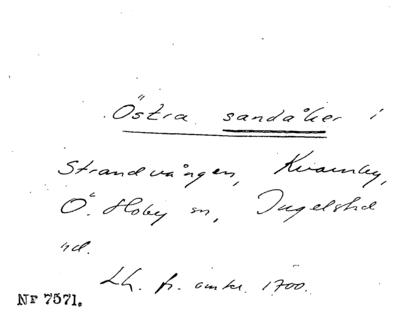 Östra sandåker i
Strandvången, Kvarnby,
Ö. Hoby sn, Ingelstad
hd.
Lh. fr. omkr. 1700.
Nr 7571.